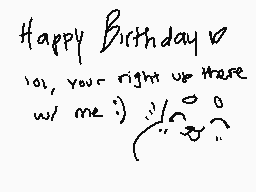 Happy Birthday ♥
lol, your right up there
w/ me :)